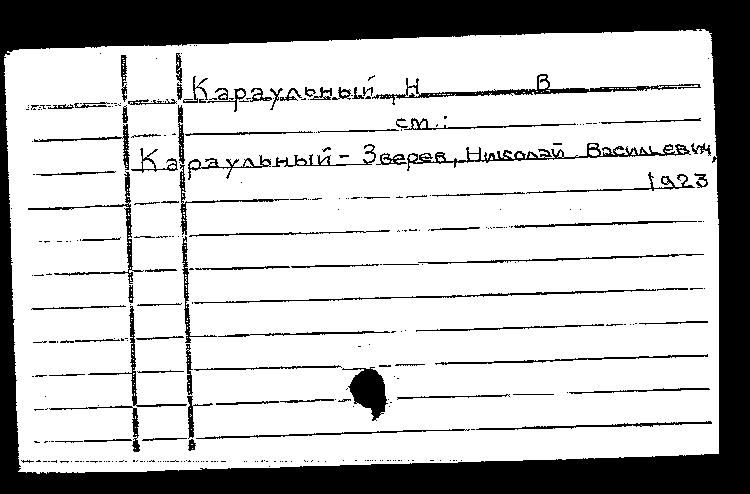 Караульный, Н В
см.:
Караульный - Зверев, Николай Васильевич,
1923